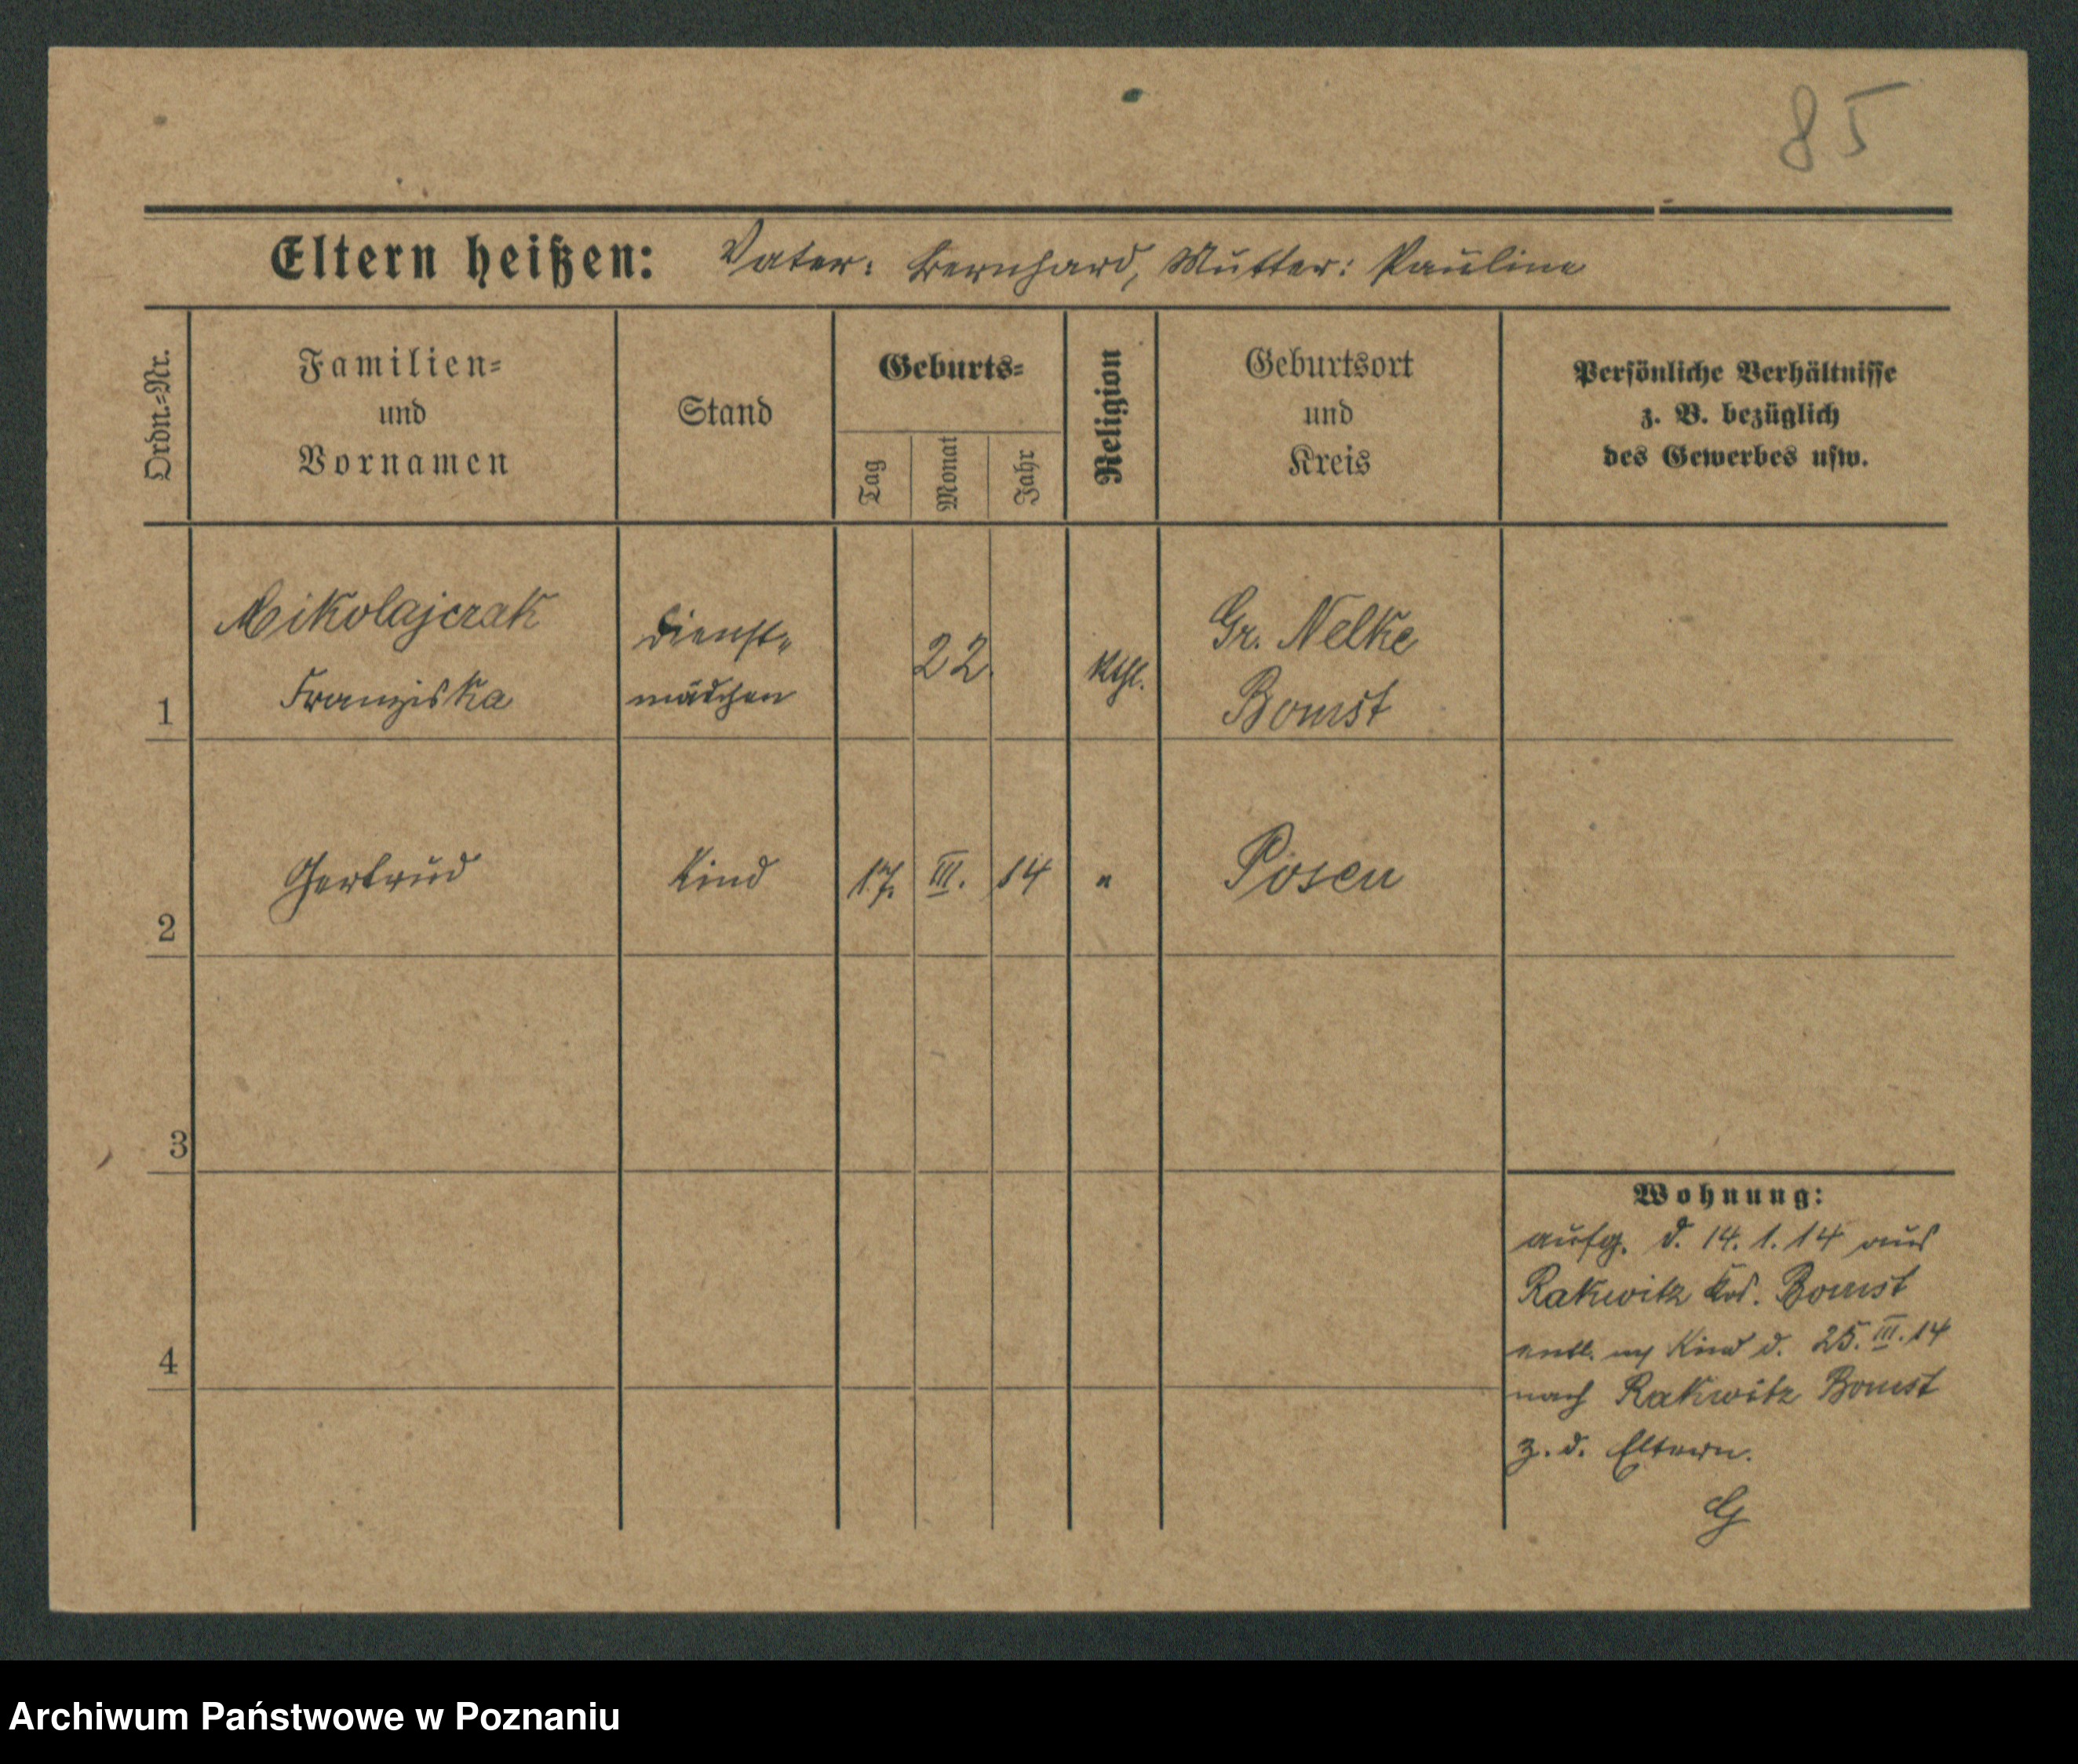 85
Eltern heißen: Vater: Bernhard, Mutter: Pauline
Ordn.-Nr.
Familien-
und
Vornamen
Stand
Geburts-
Tag
Monat
Jahr
Religion
Geburtsort
und
Kreis
Persönliche Verhältnisse
z. B. bezüglich
des Gewerbes usw.
1
Mikolajczak
Franziska
Dienst-
mädchen
22.
kthl.
Gr. Nelke
Bomst
2
Gertrud
Kind
17.
III.
14
"
Posen
3
4
Wohnung:
aufg. d. 14. 1. 14 aus
Rakwitz Krs. Bomst
entl. m Kind d. 25. III. 14
nach Rakwitz Bomst
z. d. Eltern.
Archiwum Państwowe w Poznaniu